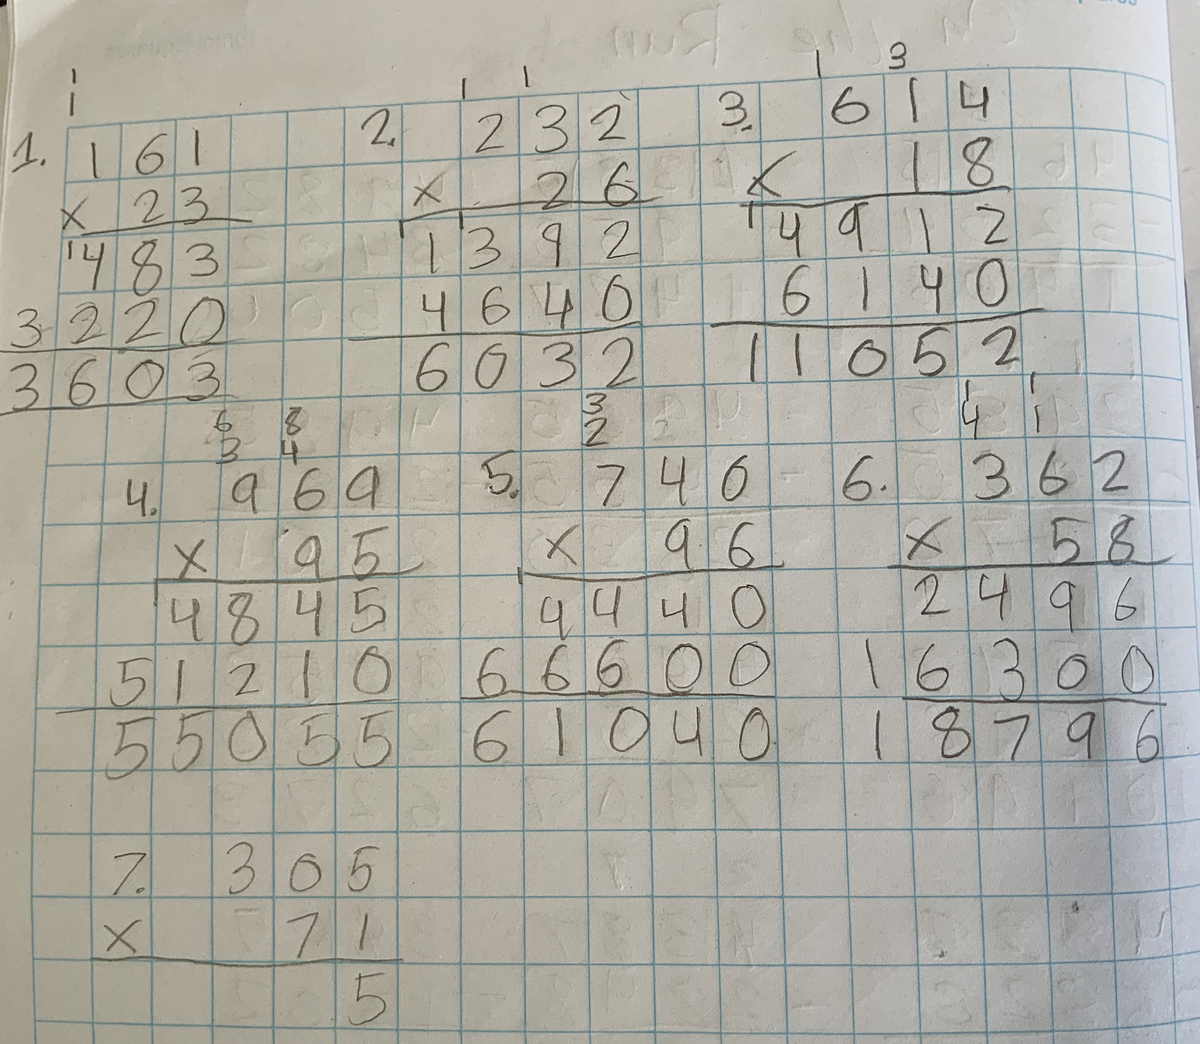 1.
1
1
161
× 23
1
483
3220
3603
2.
1 1
232
× 26
1 1
1392
4640
6032
3.
1 3
614
× 18
1
4912
6140
11052
4.
6 8
3 4
969
× 95
1
4845
51210
55055
5.
3
2
740
× 96
1
4440
66600
61040
6.
1 1
4 1
362
× 58
2496
16300
18796
7.
305
× 71
5